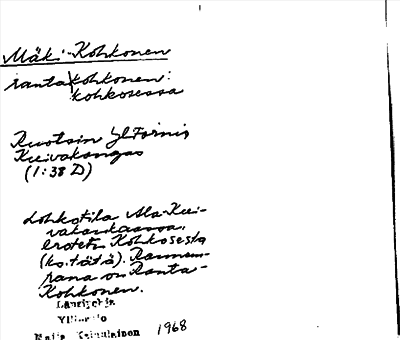 Mäki-Kohkonen
ranta kohkonen:
kohkosessa
Ruotsin Yl Tornio
Kuivakangas
(1:38 D)
Lohkotila Ala-Kui-
vakankaassa,
erotett. Kohkosesta
(ks. tätä). Rannem-
pana on Ranta-
Kohkonen.
Länsipohja
Ylitornio
Maija Kainulainen 1968